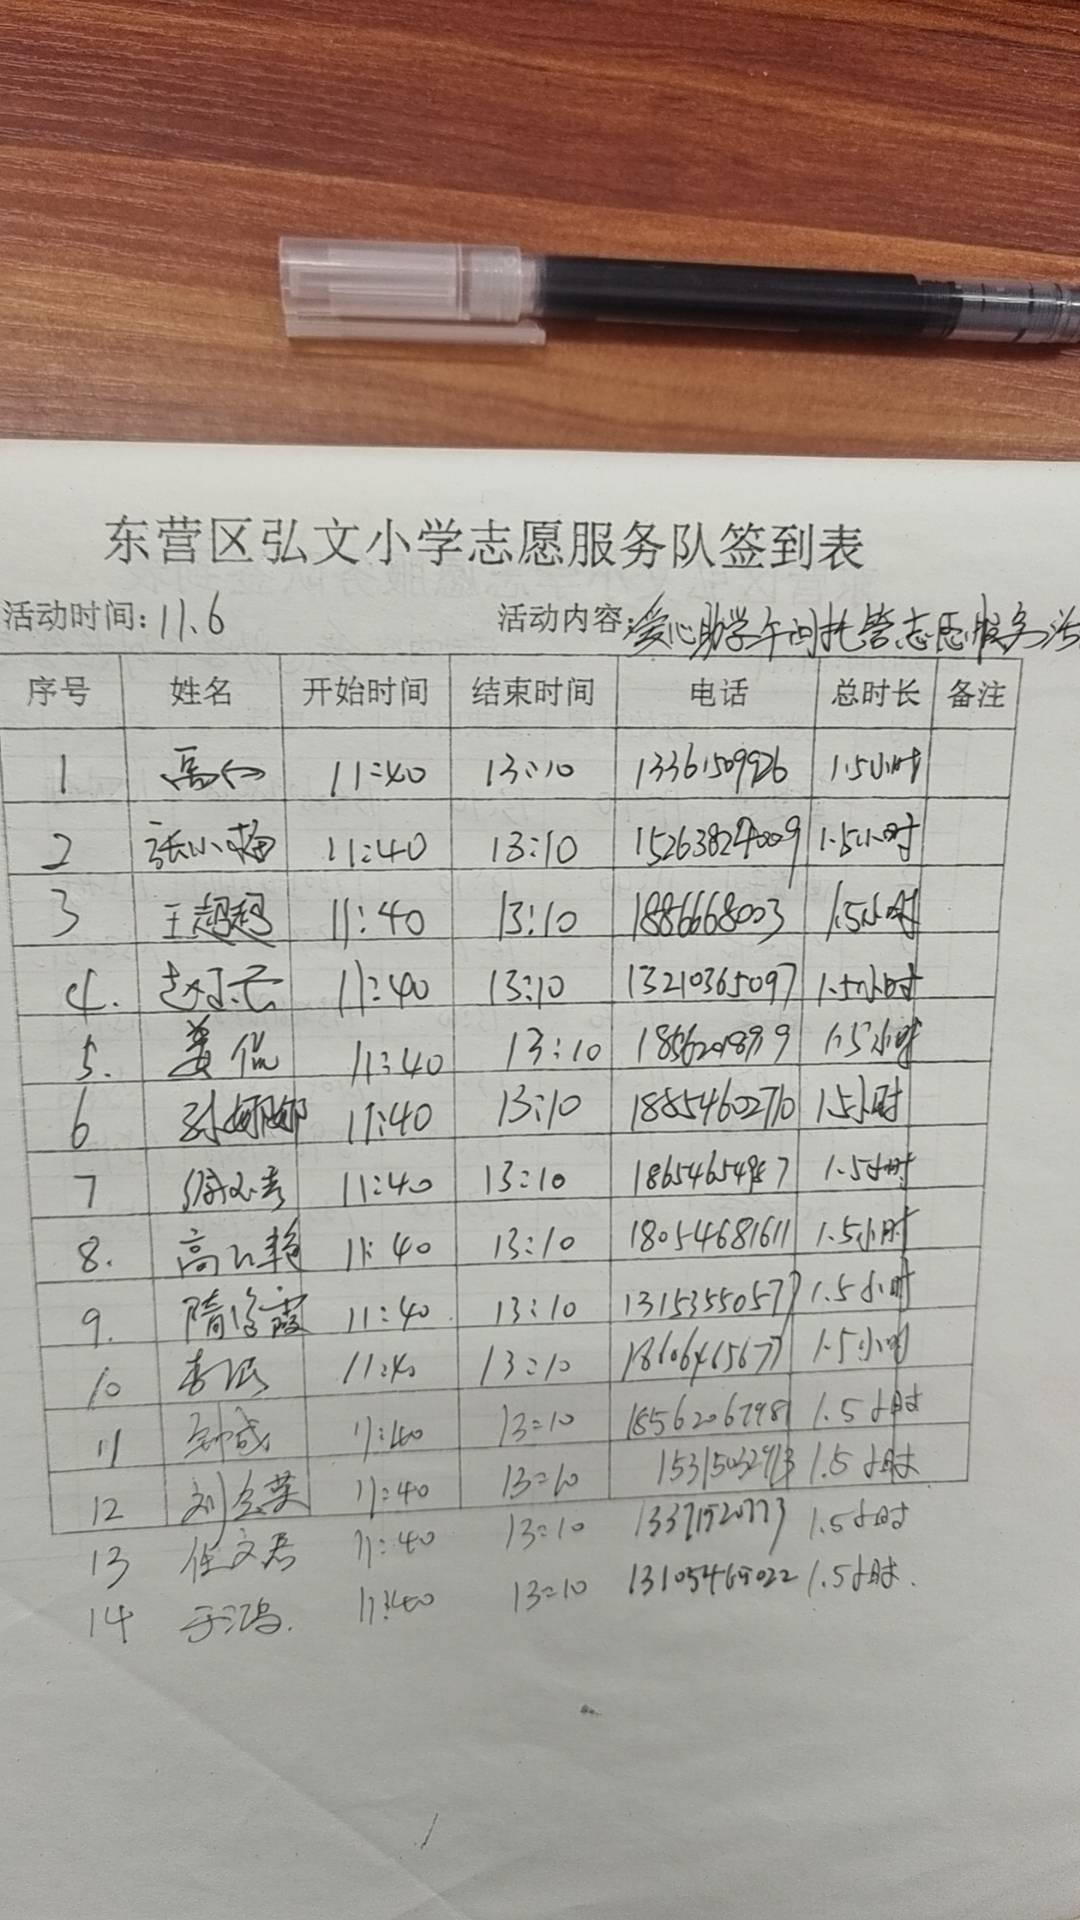 东营区弘文小学志愿服务队签到表
活动时间: 11.6 活动内容: 爱心助学午间托管志愿服务活
序号 姓名 开始时间 结束时间 电话 总时长 备注
1 11:40 13:10 13361509926 1.5小时
2 张小梅 11:40 13:10 15263824009 1.5小时
3 王超超 11:40 13:10 18866668003 1.5小时
4. 11:40 13:10 13210365097 1.5小时
5. 姜侃 11:40 13:10 1.5小时
6 孙娜娜 11:40 13:10 18854602710 1.5小时
7 11:40 13:10 18654654987 1.5小时
8. 11:40 13:10 18054681611 1.5小时
9. 隋俊霞 11:40 13:10 13153550577 1.5小时
10 11:40 13:10 1.5小时
11 11:40 13:10 18562067981 1.5小时
12 11:40 13:10 15315032913 1.5小时
13 任文君 11:40 13:10 1.5小时
14 于鸿. 11:40 13:10 13105469022 1.5小时.